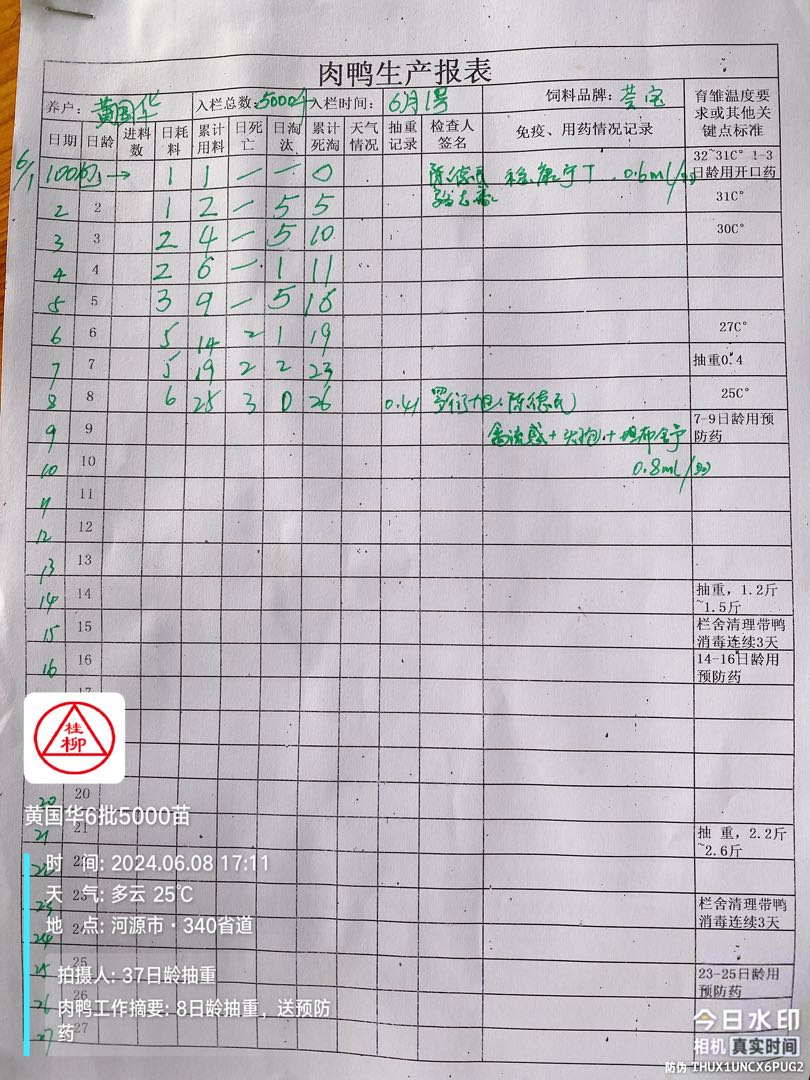 肉鸭生产报表
养户: 黄国华 入栏总数: 5000只 入栏时间: 6月1号 饲料品牌: 芸宝 育雏温度要求或其他关键点标准
日期 日龄 进料数 日耗料 累计用料 日死亡 日淘汰 累计死淘 天气情况 抽重记录 检查人签名 免疫、用药情况记录
6/1 100包 → 1 1 一 一 0 陈德民 0.6ml/只 32~31C° 1-3日龄用开口药
2 2 1 2 一 5 5 31C°
3 3 2 4 一 5 10 30C°
4 4 2 6 一 1 11
5 5 3 9 一 5 16
6 6 5 14 2 1 19 27C°
7 7 5 19 2 2 23 抽重0.4
8 8 6 25 3 0 26 0.41 陈德民 25C°
9 9 7-9日龄用预防药
10 10 0.8ml/只
11 11
12 12
13 13
14 14 抽重, 1.2斤~1.5斤
15 15 栏舍清理带鸭消毒连续3天
16 16 14-16日龄用预防药
17
桂柳
20 20
黄国华6批5000苗
21 21 抽 重, 2.2斤~2.6斤
时 间: 2024.06.08 17:11
22
天 气: 多云 25℃
23 23 栏舍清理带鸭消毒连续3天
地 点: 河源市·340省道
24 24
25 25 23-25日龄用预防药
拍摄人: 37日龄抽重
26 26
肉鸭工作摘要: 8日龄抽重，送预防药
27 27
今日水印
相机 真实时间
防伪 THUX1UNCX6PUG2